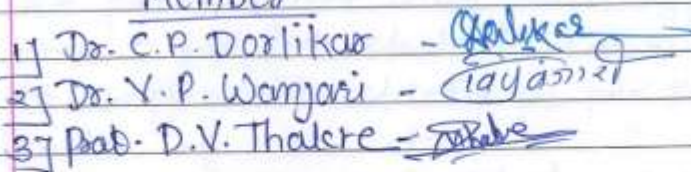 Member
1] Dr. C.P. Dorlikar -
2] Dr. V.P. Wanjari -
3] Prof. D.V. Thakre -